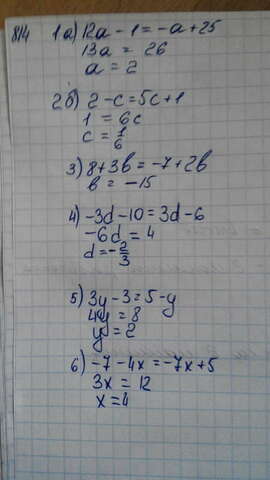 814 1 а) 12a - 1 = -a + 25
13a = 26
a = 2
2 б) 2 - c = 5c + 1
1 = 6c
c = 1/6
3) 8 + 3b = -7 + 2b
b = -15
4) -3d - 10 = 3d - 6
-6d = 4
d = -2/3
5) 3y - 3 = 5 - y
4y = 8
y = 2
6) -7 - 4x = -7x + 5
3x = 12
x = 4